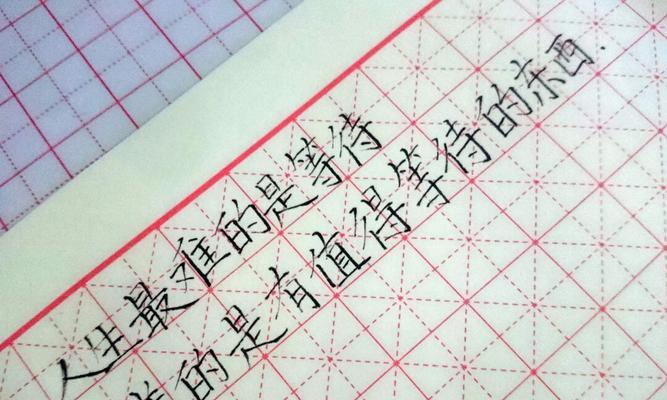 人生最难的是等待
的是有值得等待的东西.